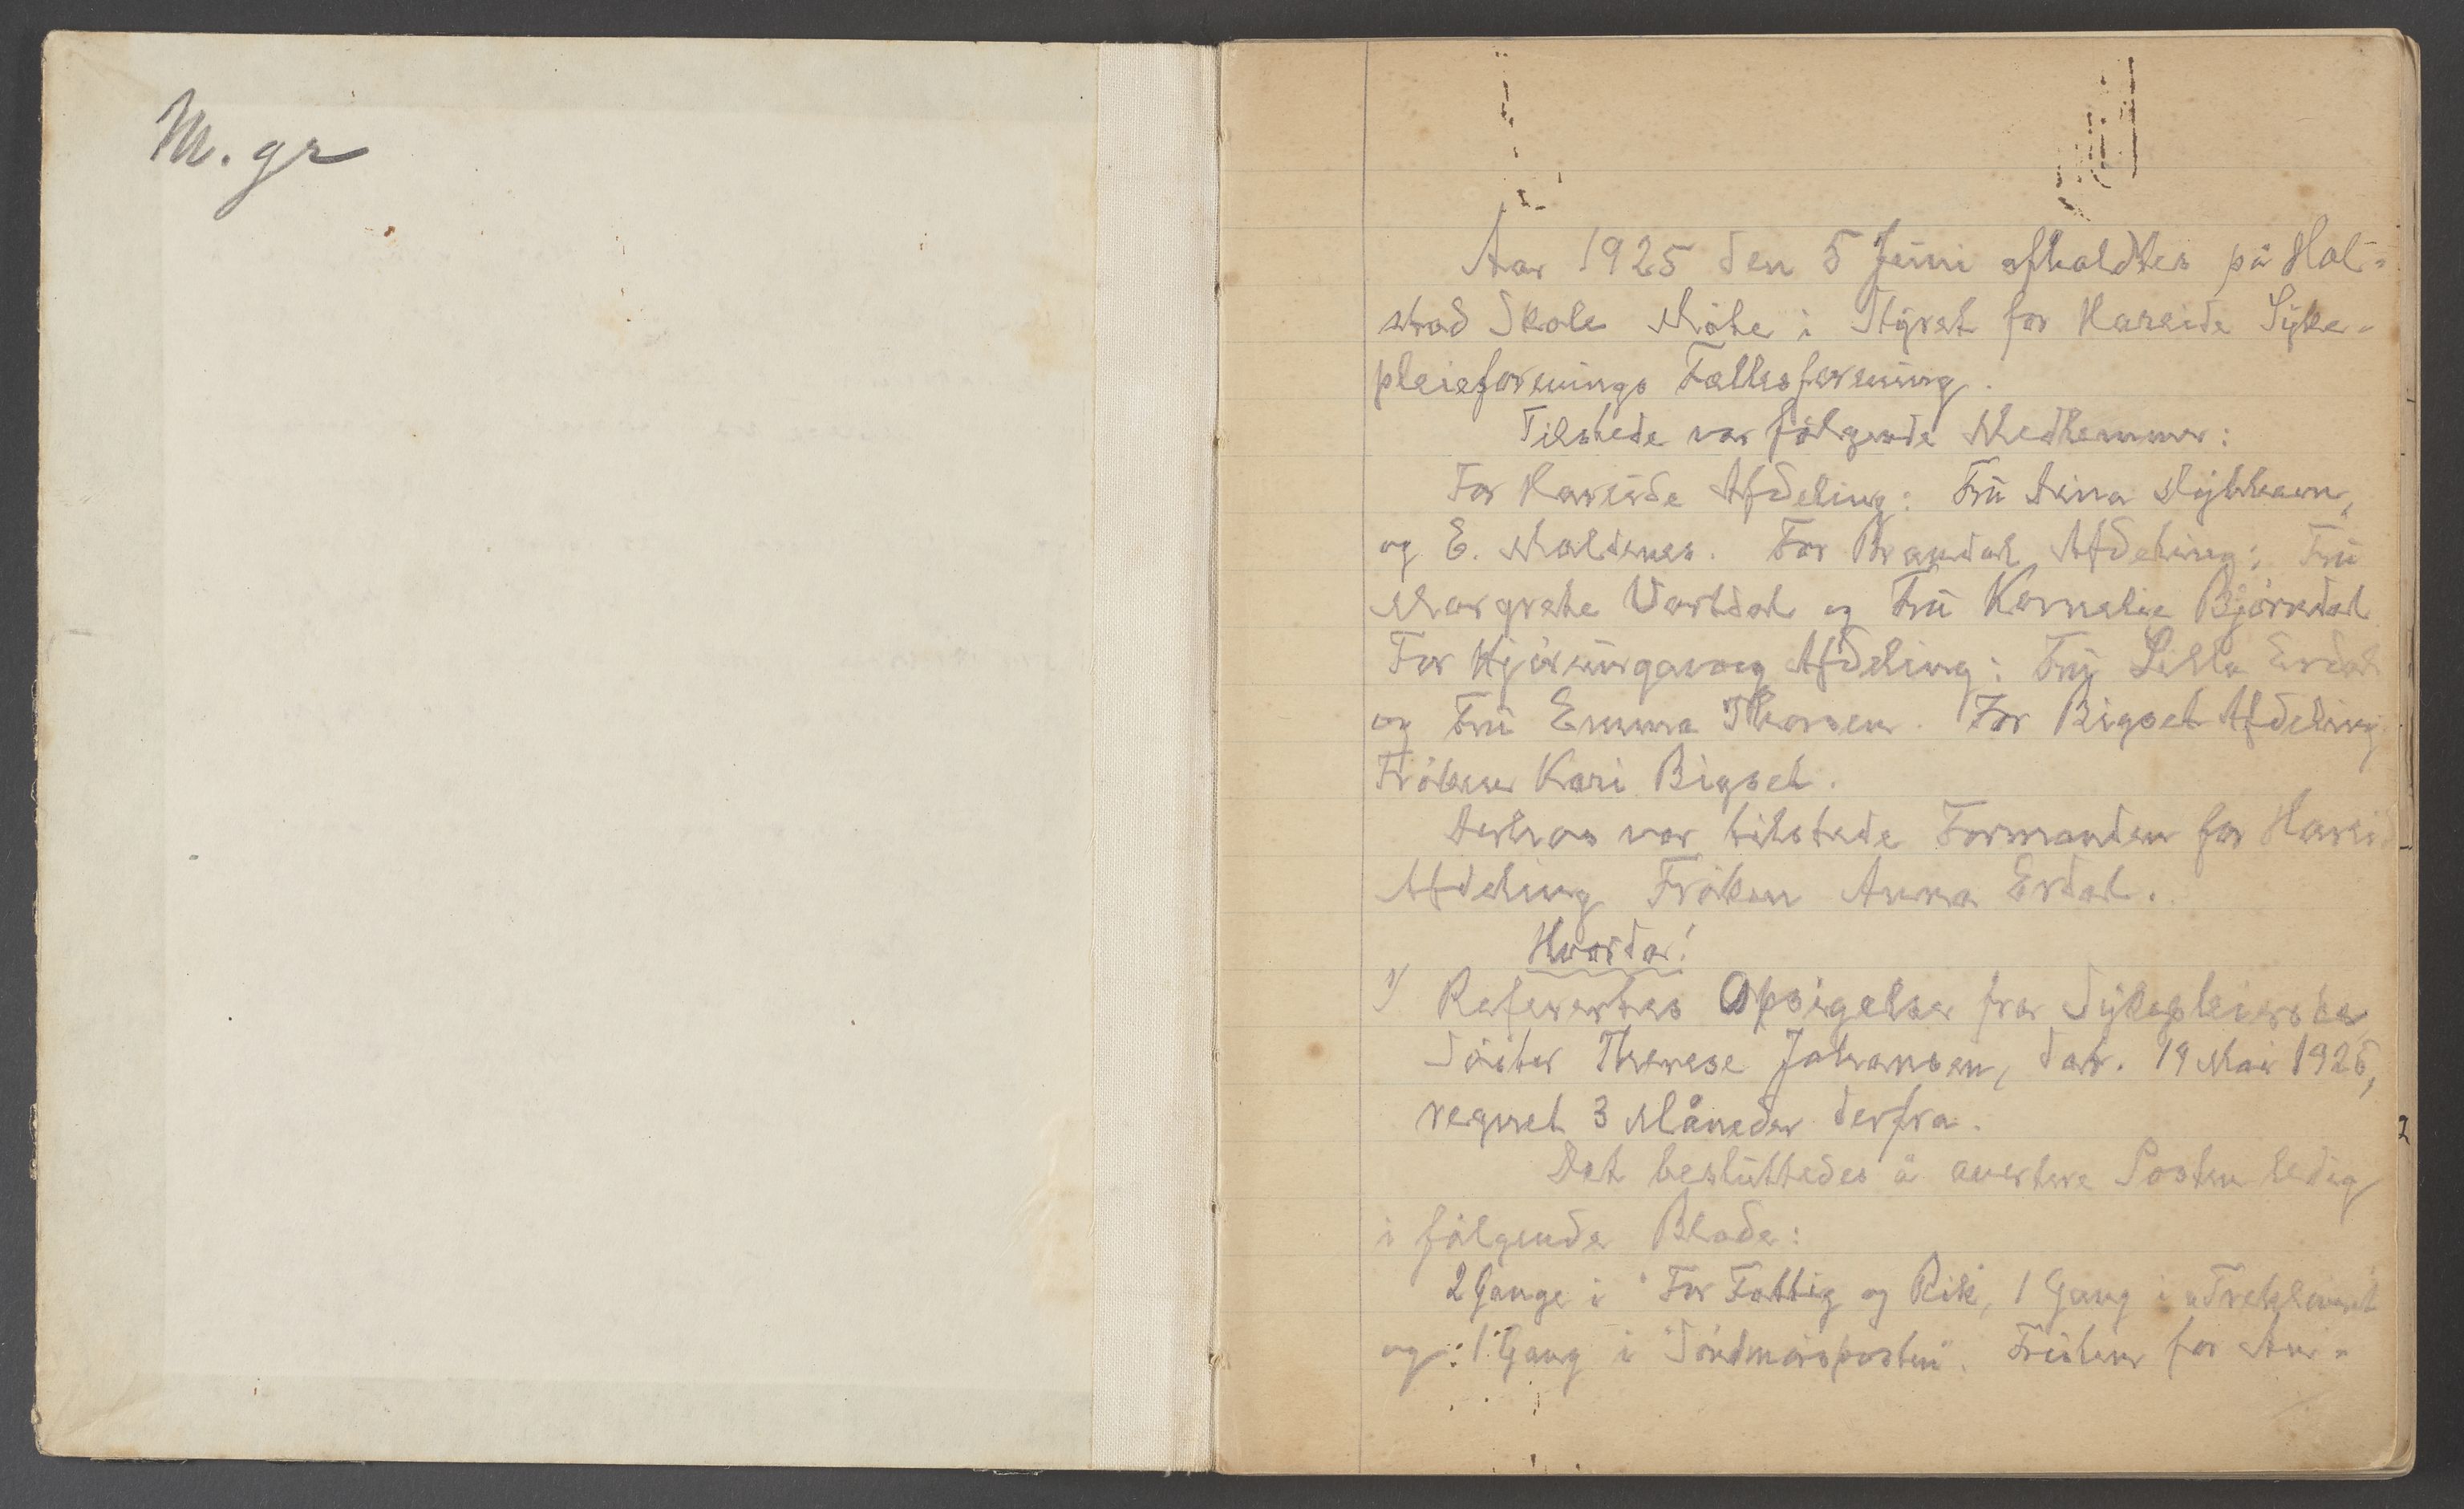 M. gr
Aar 1925 den 5 Juni afholdtes på Hol-
stad Skole Møte i Styret for Hareide Syke-
pleieforenings Fællesforening.
Tilstede var følgende Medlemmer:
For Hareide Afdeling: Fru Anna
og E. Moldenes. For Brandal Afdeling: Fru
Margrethe Vartdal og Fru Kornelie Bjørndal
For Hjørungavaag Afdeling: Fru Lilla Erdal
og Fru Emma Thorsen. For Bigset Afdeling
Frøken Kari Bigset.
Derhos var tilstede Formanden for Hareid
Afdeling Frøken Anna Erdal.
Hvorda!
1) Refereertes Opsigelse fra Sykepleierske
Søster Therese Johansen, dat. 19 Mai 1925,
regnet 3 Måneder derfra.
Det besluttedes å avertere Posten ledig
i følgende Blade:
2 Gange i "For Fattig og Rik", 1 Gang i "Trekløveret
og: 1 Gang i "Søndmørsposten". Fristen for An-
2